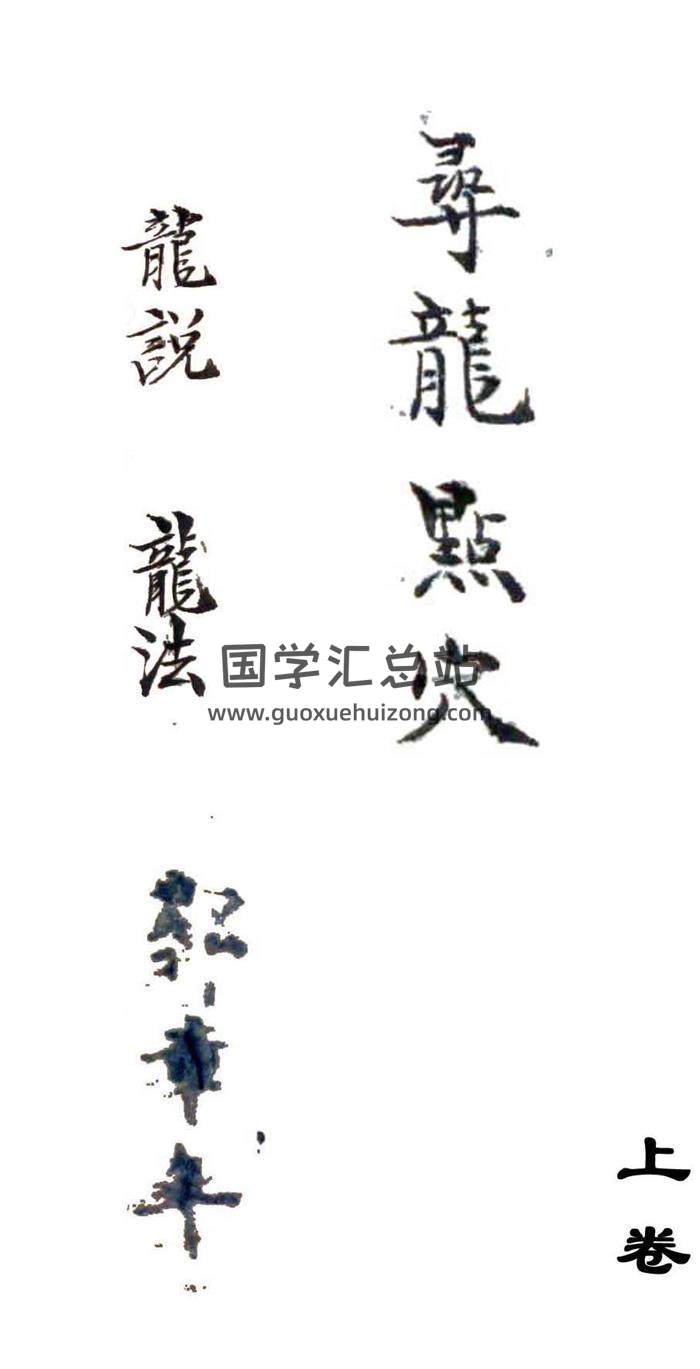 尋龍點穴
龍說 龍法
国学汇总站
www.guoxuehuizong.com
上卷